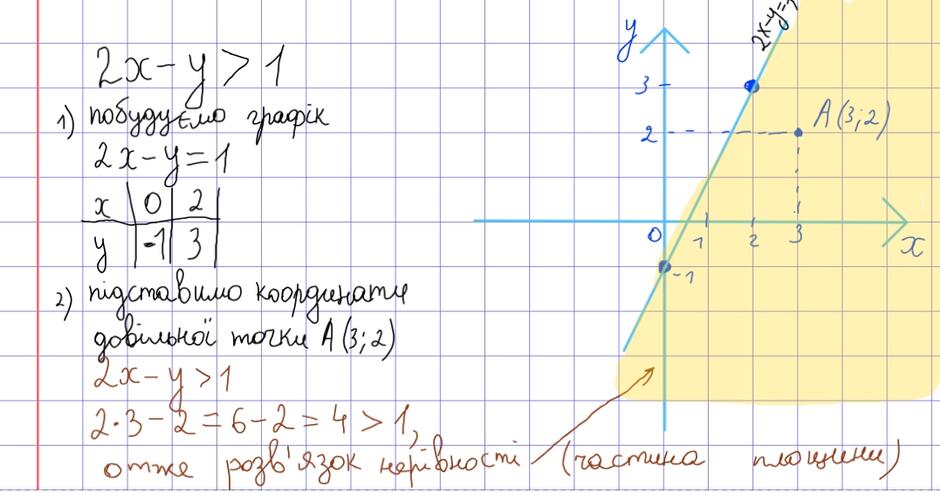 2x - y > 1
1) побудуємо графік
2x - y = 1
x | 0 | 2
y | -1 | 3
2) підставимо координати
довільної точки A(3;2)
2x - y > 1
2·3 - 2 = 6 - 2 = 4 > 1,
отже розв'язок нерівності (частина площини)
y
2x-y=
3
2
A(3;2)
0
1
2
3
x
-1